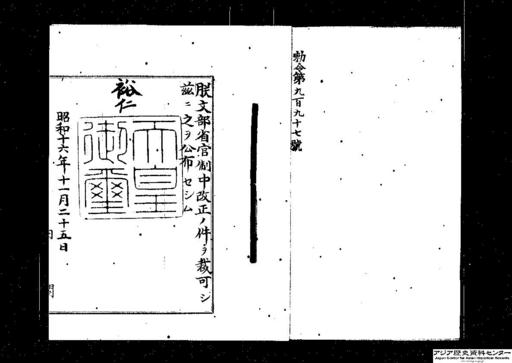 勅令第九百九十七號
朕文部省官制中改正ノ件ヲ裁可シ
茲ニ之ヲ公布セシム
裕仁
天皇
御璽
昭和十六年十一月二十五日
アジア歴史資料センター
Japan Center for Asian Historical Records